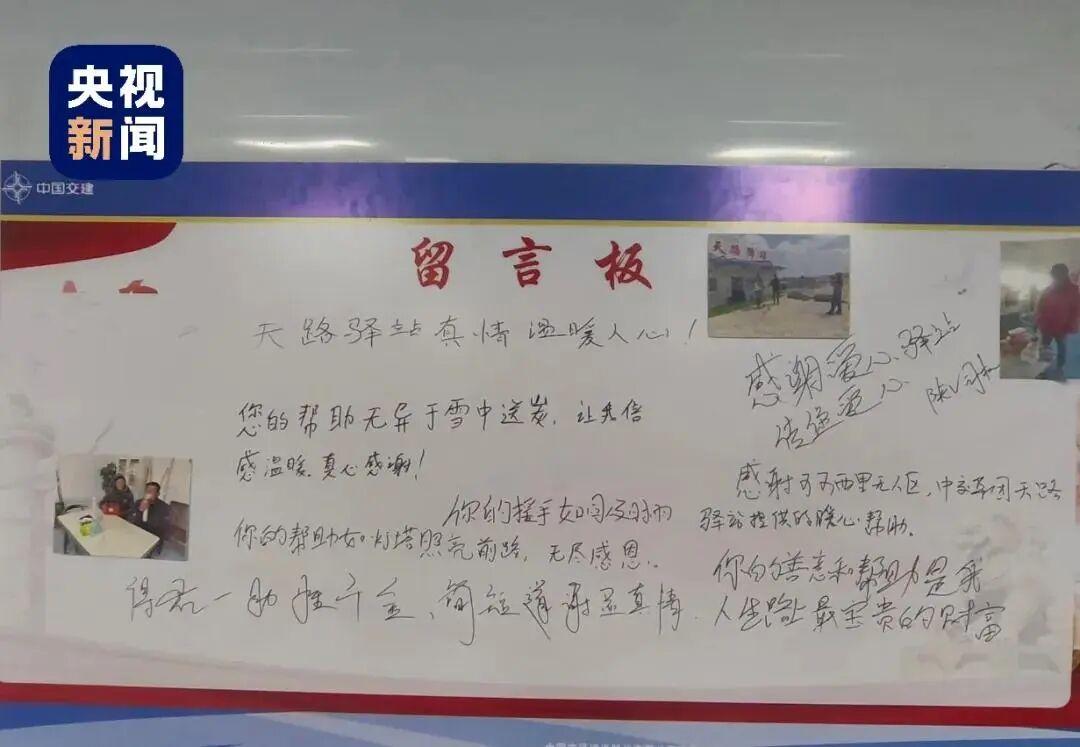 央视
新闻
中国交建
留言板
天路驿站
天路驿站真情温暖人心！
感谢爱心驿站
传递爱心
您的帮助无异于雪中送炭，让我倍
感温暖，真心感谢！
感谢可可西里无人区，中交集团天路
驿站提供的暖心帮助。
你的援手如同及时雨
你的帮助如灯塔照亮前路，无尽感恩。
你的善意和帮助是我
人生路上最宝贵的财富
得君一助胜千金，简短道谢显真情